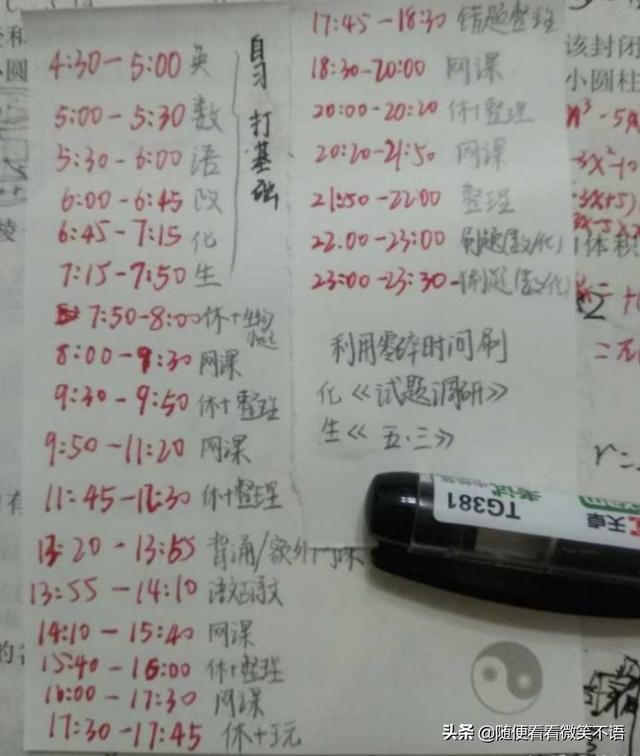 4:30-5:00 英
5:00-5:30 数
5:30-6:00 语
6:00-6:45 政
6:45-7:15 化
7:15-7:50 生
自习 打基础
7:50-8:00 休+生物
8:00-9:30 网课
9:30-9:50 休+整理
9:50-11:20 网课
11:45-12:30 休+整理
13:20-13:55 背诵/额外
13:55-14:10 语文
14:10-15:40 网课
15:40-16:00 休+整理
16:00-17:30 网课
17:30-17:45 休+玩
17:45-18:30 错题整理
18:30-20:00 网课
20:00-20:20 休+整理
20:20-21:50 网课
21:50-22:00 整理
22:00-23:00 刷题(数/化)
23:00-23:30 刷题(数/化)
利用零碎时间刷
化《试题调研》
生《五·三》
该封闭
小圆柱
体积
小圆
天卓
考试
TG381
头条 @随便看看微笑不语